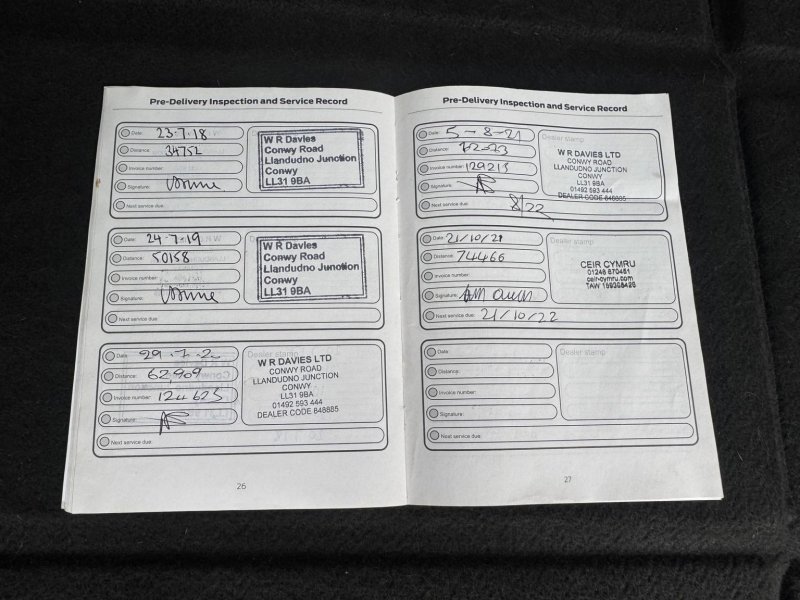 Pre-Delivery Inspection and Service Record
Date: 23.7.18
Distance: 34752
Invoice number:
Signature:
Next service due:
W R Davies
Conwy Road
Llandudno Junction
Conwy
LL31 9BA
Date: 24-7-19
Distance: 50158
Invoice number:
Signature:
Next service due:
W R Davies
Conwy Road
Llandudno Junction
Conwy
LL31 9BA
Date: 29-7-20
Distance: 62,909
Invoice number: 124625
Signature:
Next service due:
Dealer stamp
W R DAVIES LTD
CONWY ROAD
LLANDUDNO JUNCTION
CONWY
LL31 9BA
01492 593 444
DEALER CODE 848885
26
Pre-Delivery Inspection and Service Record
Date: 5-8-21
Distance:
Invoice number: 129213
Signature:
Next service due: 8/22
Dealer stamp
W R DAVIES LTD
CONWY ROAD
LLANDUDNO JUNCTION
CONWY
LL31 9BA
01492 593 444
DEALER CODE 848885
Date: 21/10/21
Distance: 74466
Invoice number:
Signature:
Next service due: 21/10/22
Dealer stamp
CEIR CYMRU
01248 670451
ceir-cymru.com
Date:
Distance:
Invoice number:
Signature:
Next service due:
Dealer stamp
27